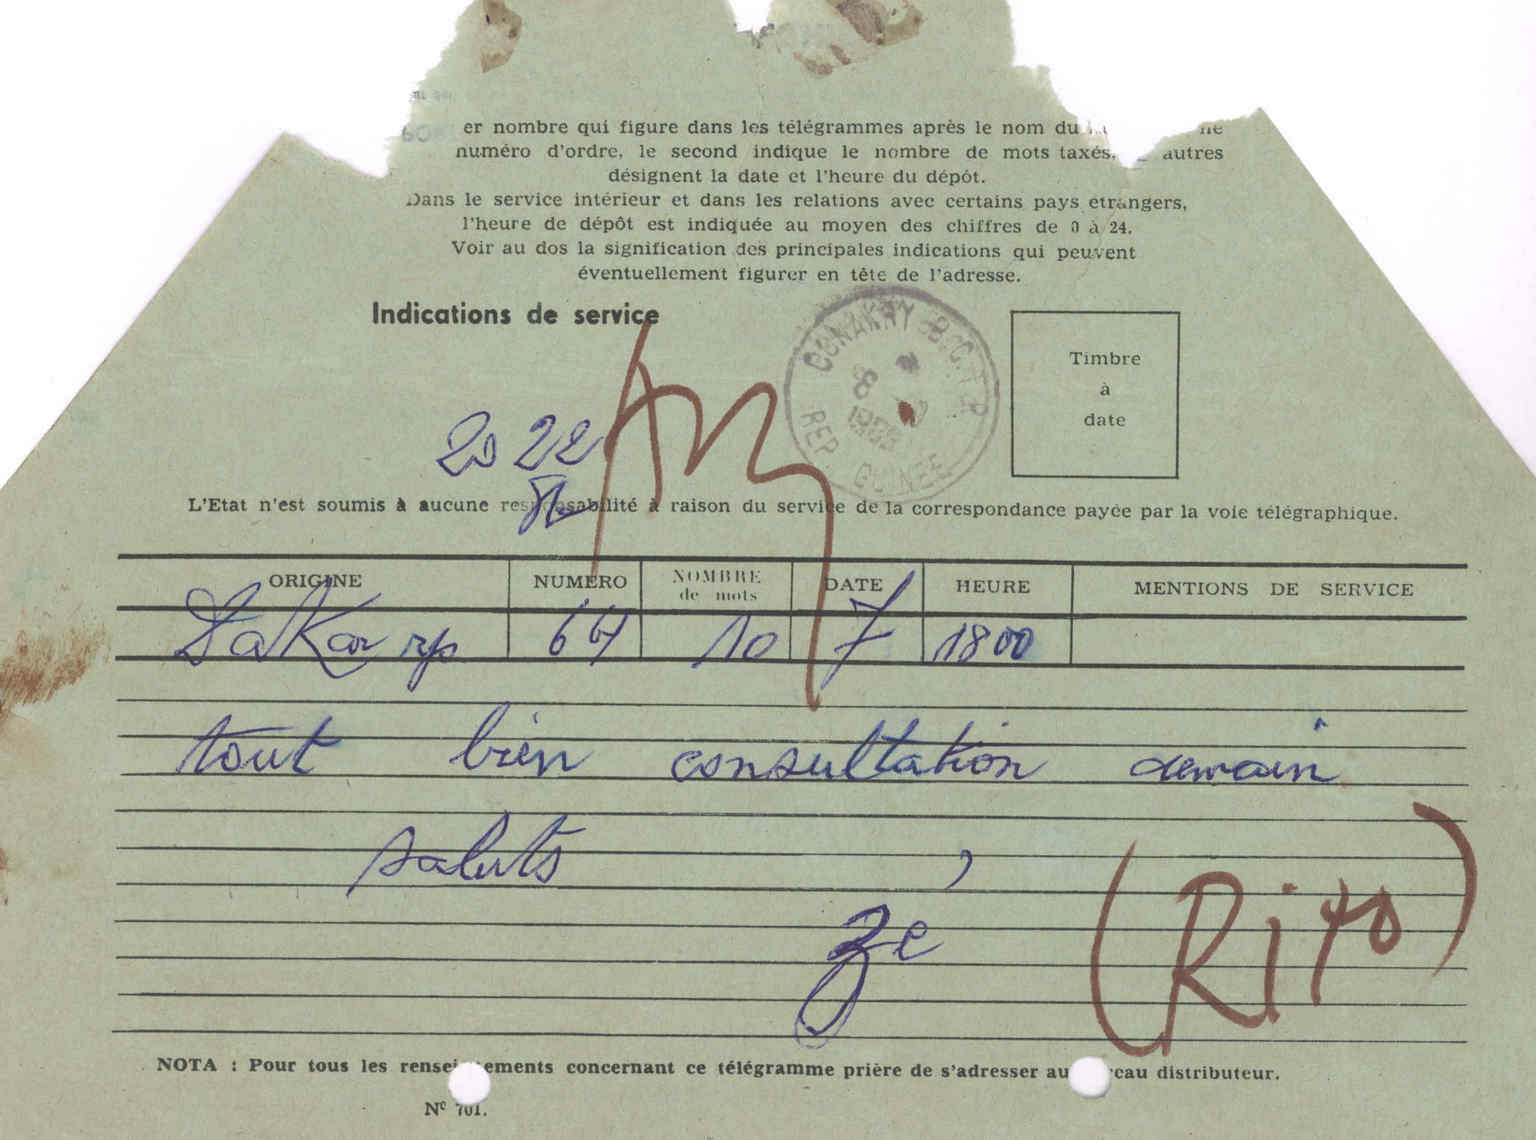 er nombre qui figure dans les télégrammes après le nom du
numéro d'ordre, le second indique le nombre de mots taxés, autres
désignent la date et l'heure du dépôt.
Dans le service intérieur et dans les relations avec certains pays étrangers,
l'heure de dépôt est indiquée au moyen des chiffres de 0 à 24.
Voir au dos la signification des principales indications qui peuvent
éventuellement figurer en tête de l'adresse.
Indications de service
CONAKRY
REP. GUINEE
Timbre
à
date
20 22
L'Etat n'est soumis à aucune responsabilité à raison du service de la correspondance payée par la voie télégraphique.
ORIGINE NUMERO NOMBRE de mots DATE HEURE MENTIONS DE SERVICE
Dakar rp 64 10 7 1800
tout bien consultation demain
saluts
Zé
(Rito)
NOTA : Pour tous les rensei ements concernant ce télégramme prière de s'adresser au eau distributeur.
N° 701.